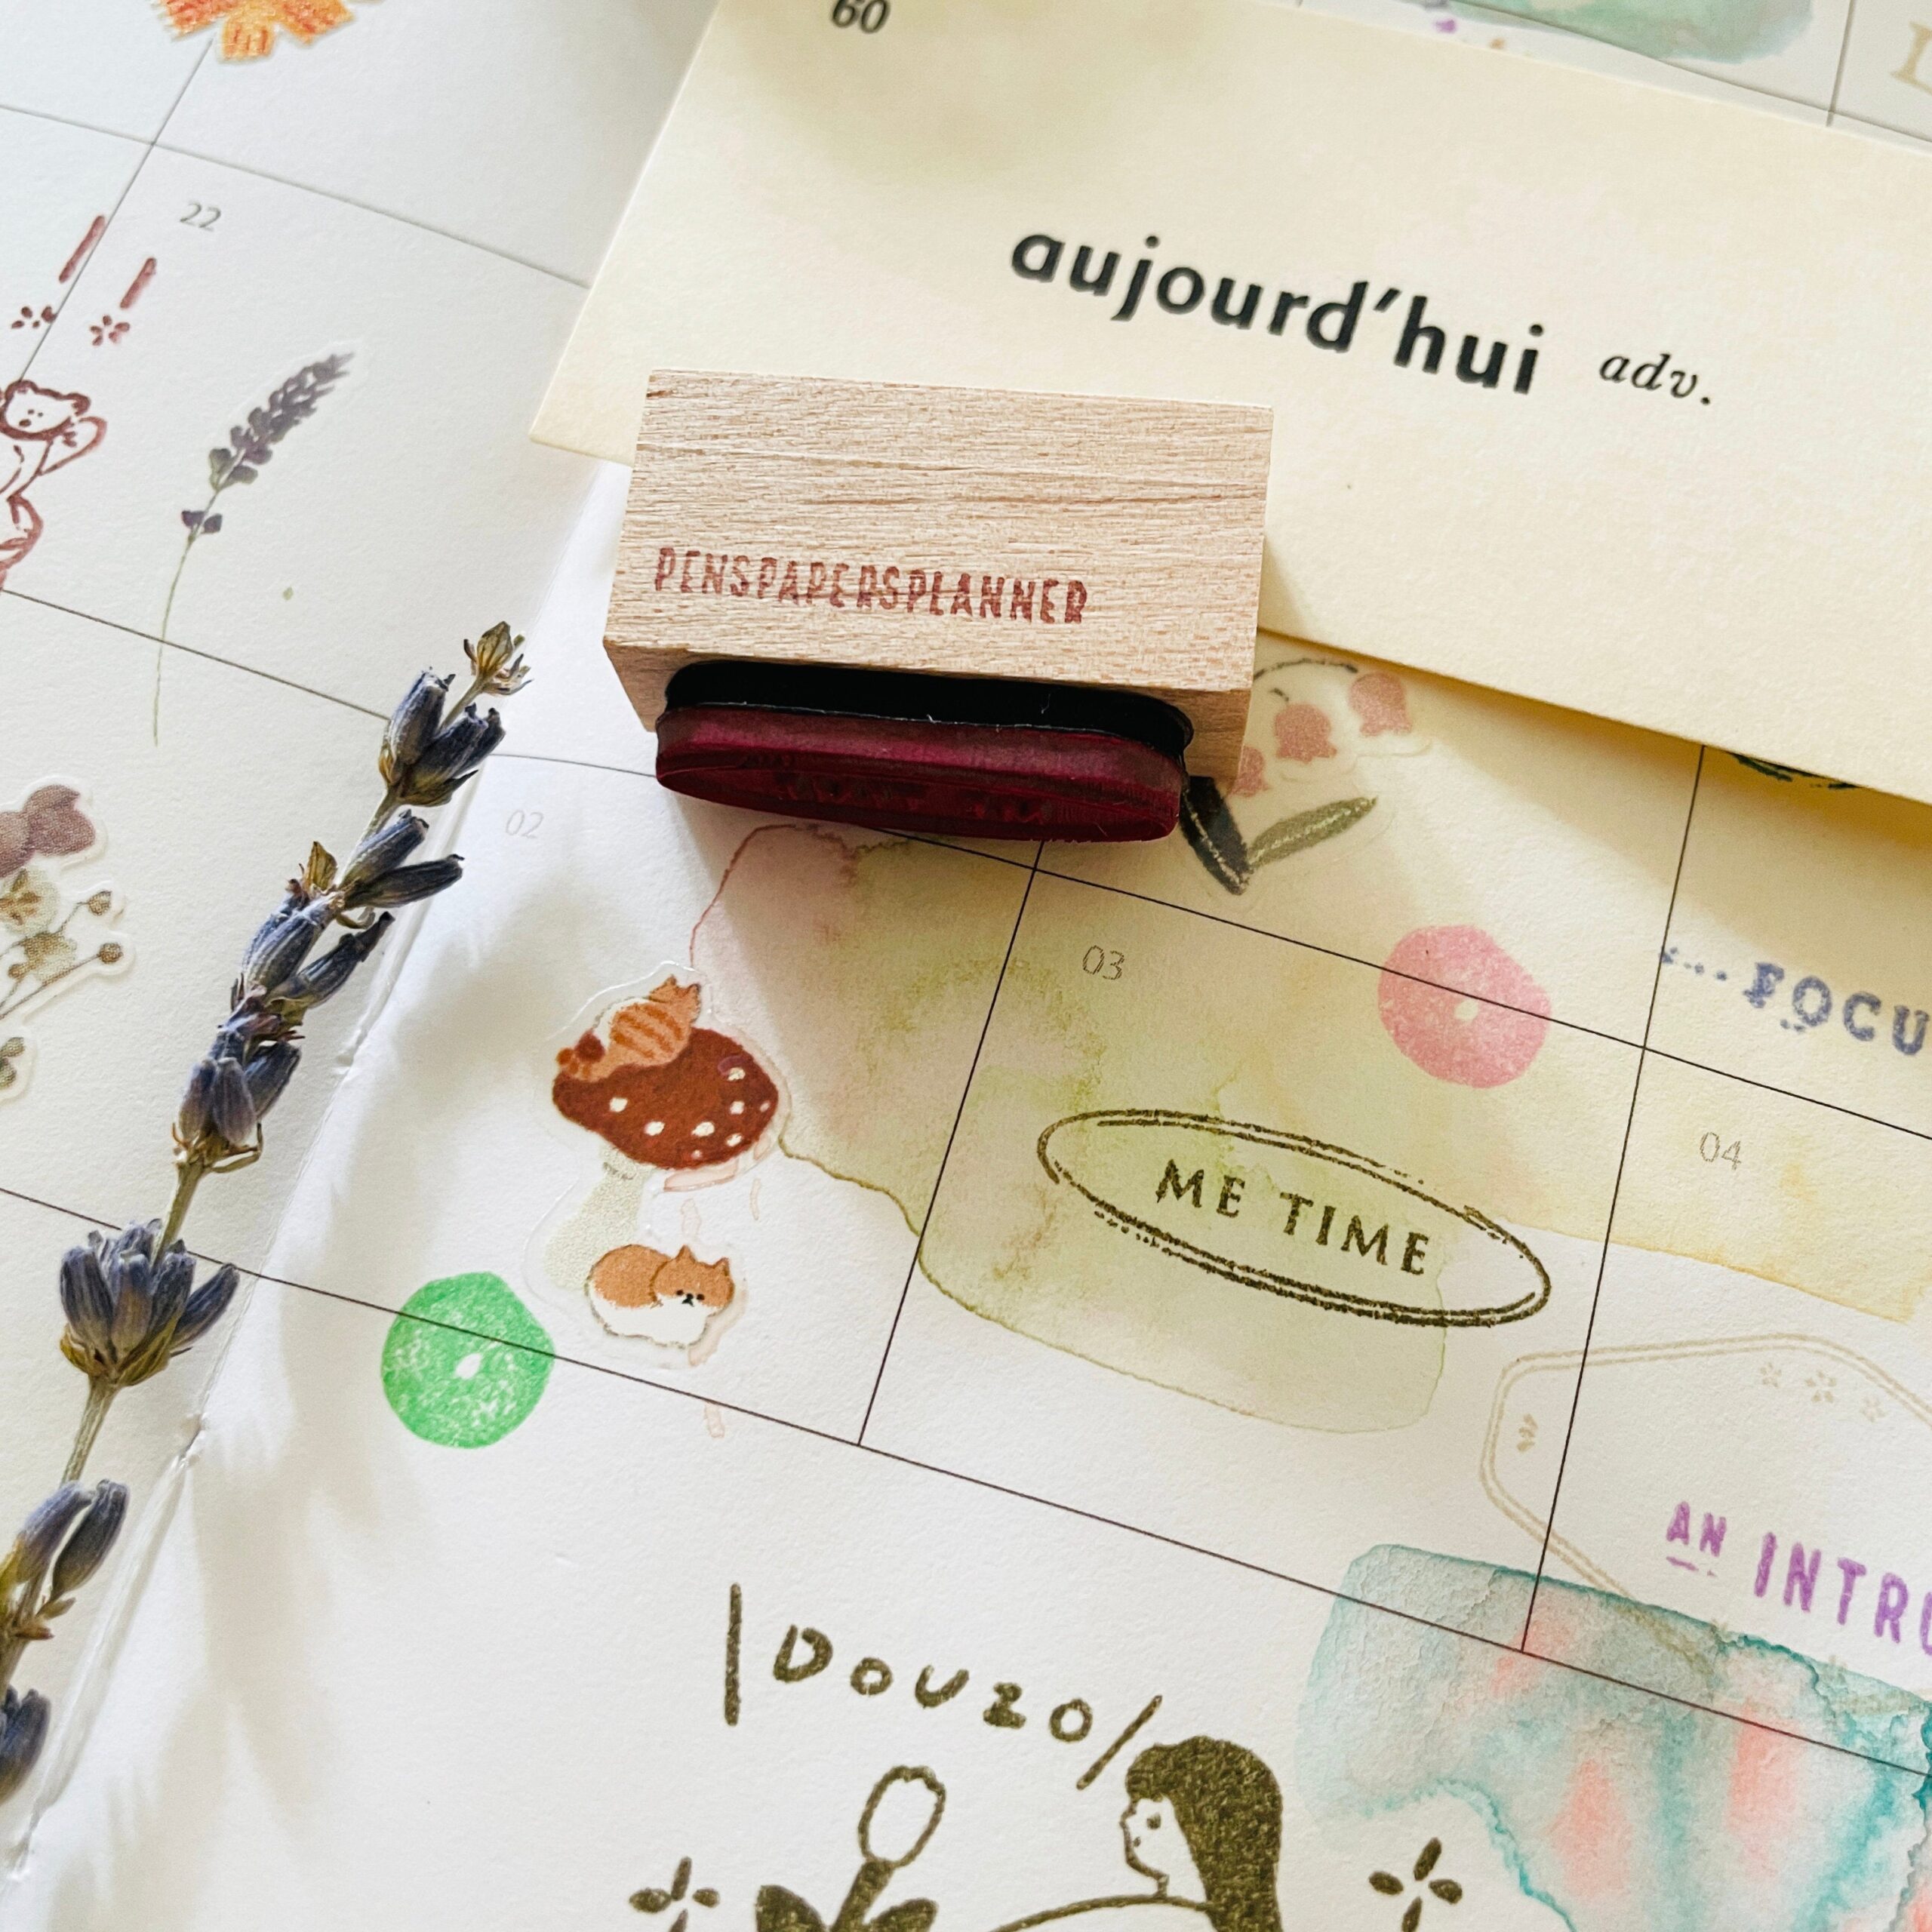 60
aujourd'hui adv.
22
PENSPAPERSPLANNER
02
03
... FOCU
ME TIME
04
AN INTRO
DOUZO